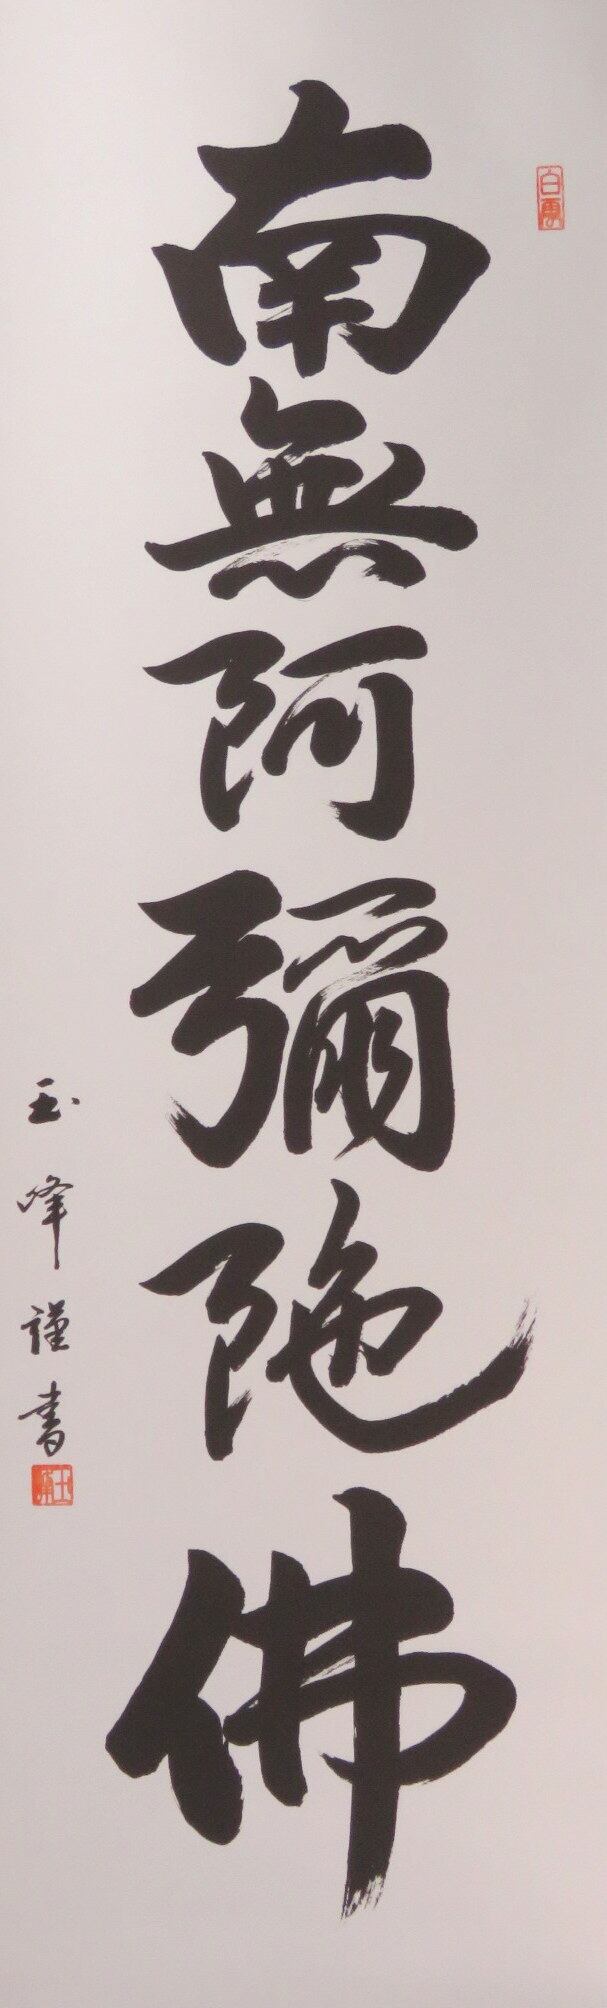 白雲
南無阿彌陀佛
玉峰謹書